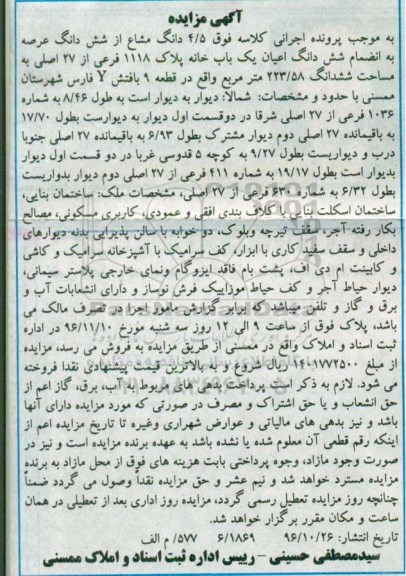 آگهی مزایده
به موجب پرونده اجرائی کلاسه فوق ۴/۵ دانگ مشاع از شش دانگ عرصه
به انضمام شش دانگ اعیان یک باب خانه پلاک ۱۱۱۸ فرعی از ۲۷ اصلی به
مساحت ششدانگ ۲۲۳/۵۸ متر مربع واقع در قطعه ۹ بافتش ۷ فارس شهرستان
ممسنی با حدود و مشخصات: شمالا: دیوار به دیوار است به طول ۸/۴۶ به شماره
۱۰۳۶ فرعی از ۲۷ اصلی شرقا در دوقسمت اول دیوار به دیوارست بطول ۱۷/۷۰
به باقیمانده ۲۷ اصلی دوم دیوار مشترک بطول ۶/۹۳ به باقیمانده ۲۷ اصلی جنوبا
درب و دیواریست بطول ۹/۲۷ به کوچه ۵ قدوسی غربا در دو قسمت اول دیوار
بدیوار است بطول ۱۹/۱۷ به شماره ۴۱۱ فرعی از ۲۷ اصلی دوم دیوار بدواریست
بطول ۶/۳۲ به شماره ۶۳۰ فرعی از ۲۷ اصلی، مشخصات ملک: ساختمان بنایی،
ساختمان اسکلت بنایی با کلاف بندی افقی و عمودی، کاربری مسکونی، مصالح
بکار رفته آجر، سقف تیرچه وبلوک، دو خوابه با سالن پذیرایی بدنه دیوارهای
داخلی و سقف سفید کاری با ابزار، کف سرامیک با آشپزخانه سرامیک و کاشی
و کابینت ام دی اف، پشت بام فاقد ایزوگام ونمای خارجی پلاستر سیمانی،
دیوار حیاط آجر و کف حیاط موزاییک فرش نوساز و دارای انشعابات آب و
برق و گاز و تلفن میباشد که برابر گزارش مامور اجرا در تصرف مالک می
باشد، پلاک فوق از ساعت ۹ الی ۱۲ روز سه شنبه مورخ ۹۶/۱۱/۱۰ در اداره
ثبت اسناد و املاک واقع در ممسنی از طریق مزایده به فروش می رسد، مزایده
از مبلغ ۱۴۰۱۷۷۲۵۰۰ ریال شروع و به بالاترین قیمت پیشنهادی نقدا فروخته
می شود. لازم به ذکر است پرداخت بدهی های مربوط به آب، برق، گاز اعم از
حق انشعاب و یا حق اشتراک و مصرف در صورتی که مورد مزایده دارای آنها
باشد و نیز بدهی های مالیاتی و عوارض شهرارى وغیره تا تاریخ مزایده اعم از
اینکه رقم قطعی آن معلوم شده یا نشده باشد به عهده برنده مزایده است و نیز در
صورت وجود مازاد، وجوه پرداختی بابت هزینه های فوق از محل مازاد به برنده
مزایده مسترد خواهد شد و نیم عشر و حق مزایده نقداً وصول می گردد ضمناً
چنانچه روز مزایده تعطیل رسمی گردد، مزایده روز اداری بعد از تعطیلی در همان
ساعت و مکان مقرر برگزار خواهد شد.
تاریخ انتشار: ۹۶/۱۰/۲۶ ۶/۱۸۶۹ ۵۷۷/ م الف
سیدمصطفی حسینی – رییس اداره ثبت اسناد و املاک ممسنی